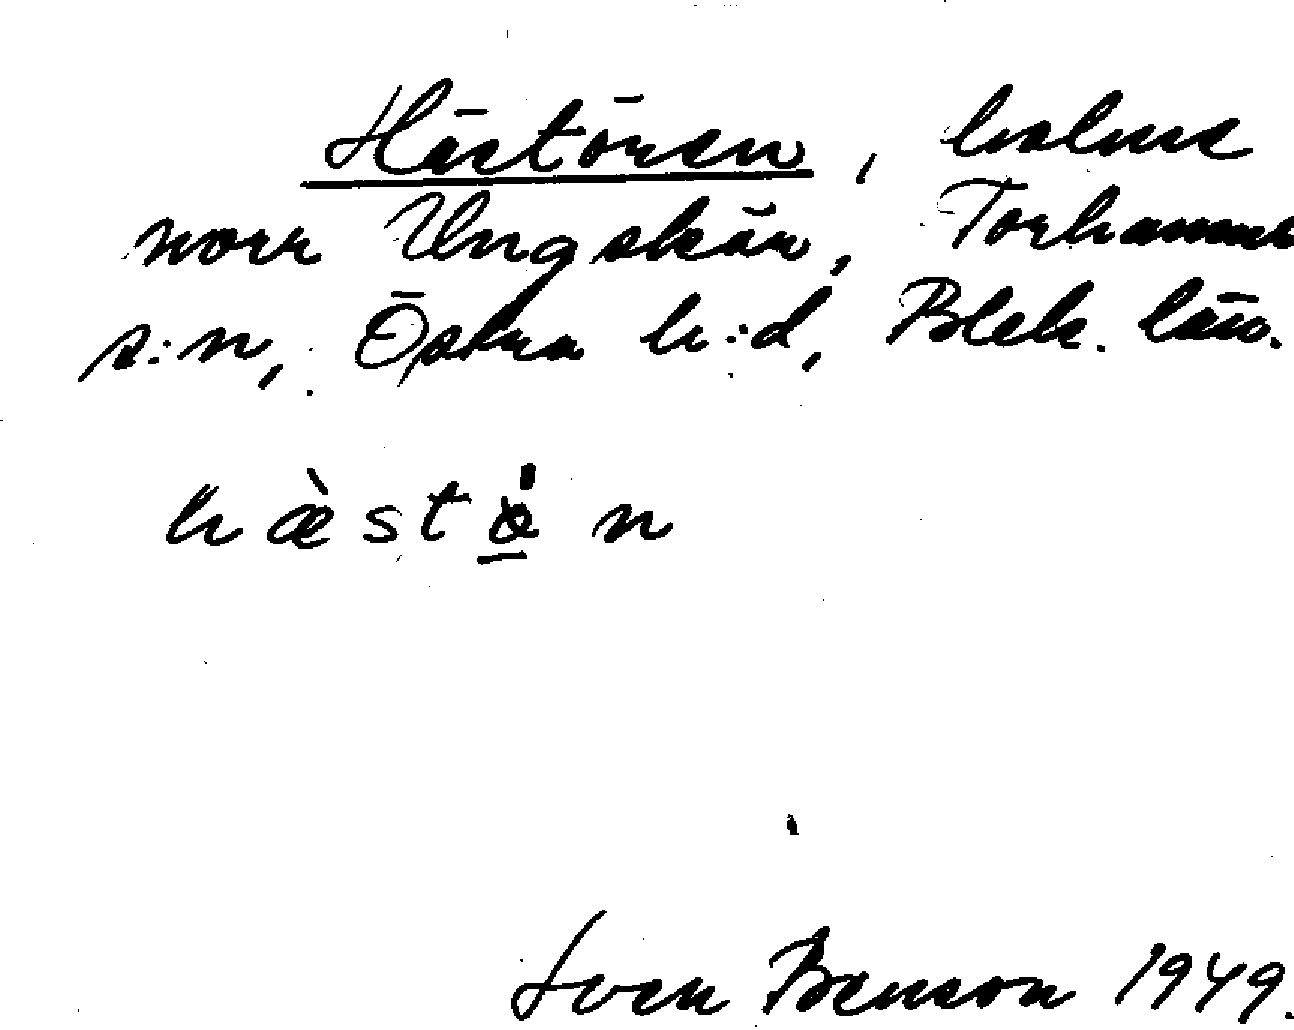 Hästören, holme
norr Ungskär, Torhamns
s:n, Östra h:d, Blek. län.
hæ̀stø̲̀n
Sven Benson 1949.